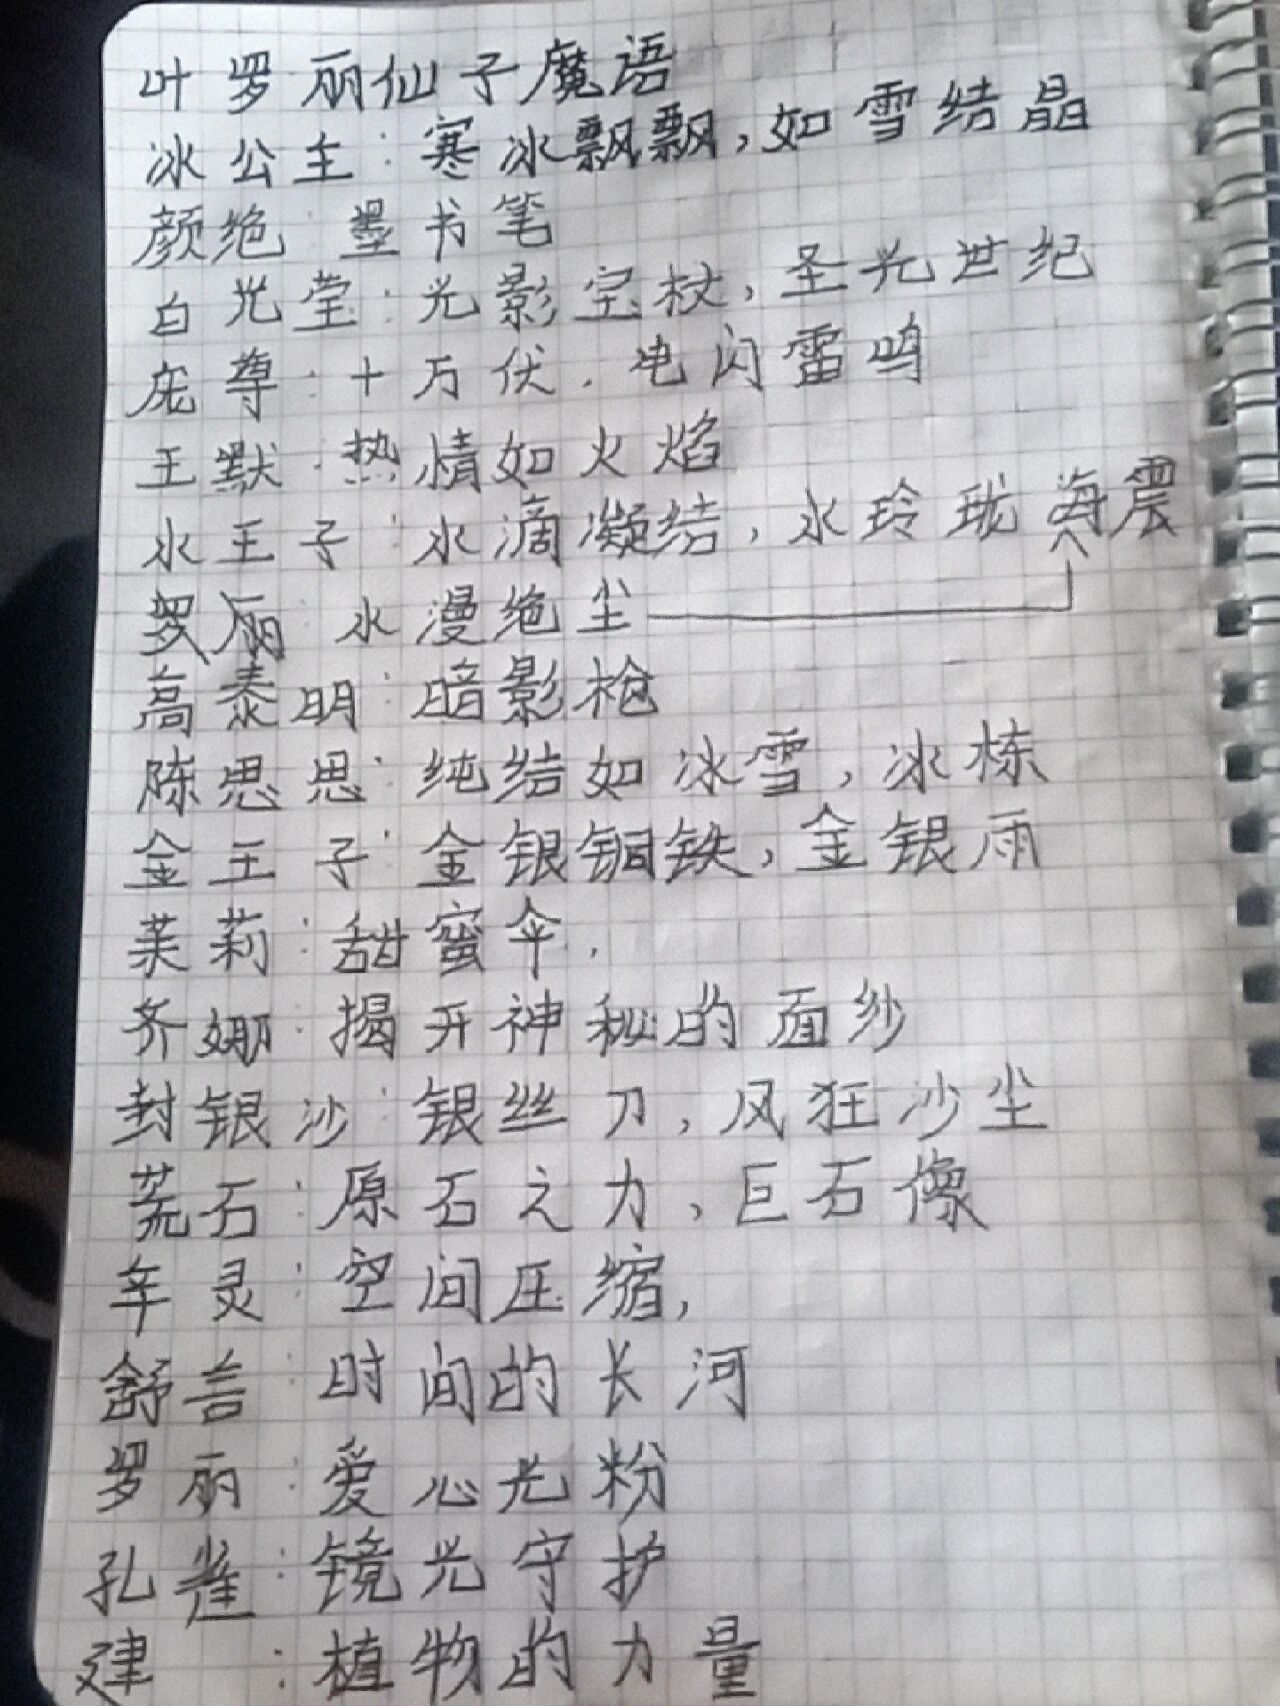 叶罗丽仙子魔语
冰公主:寒冰飘飘,如雪结晶
颜绝:墨书笔
白光莹:光影宝杖,圣光世纪
庞尊:十万伏.电闪雷鸣
王默:热情如火焰
水王子:水滴凝结,水玲珑 海震
罗丽 水漫绝尘
高泰明:暗影枪
陈思思:纯结如冰雪,冰栋
金王子:金银铜铁,金银雨
茉莉:甜蜜伞.
齐娜:揭开神秘的面纱
封银沙:银丝刀,风狂沙尘
荒石:原石之力,巨石像
辛灵:空间压缩,
舒言:时间的长河
罗丽:爱心光粉
孔雀:镜光守护
建:植物的力量